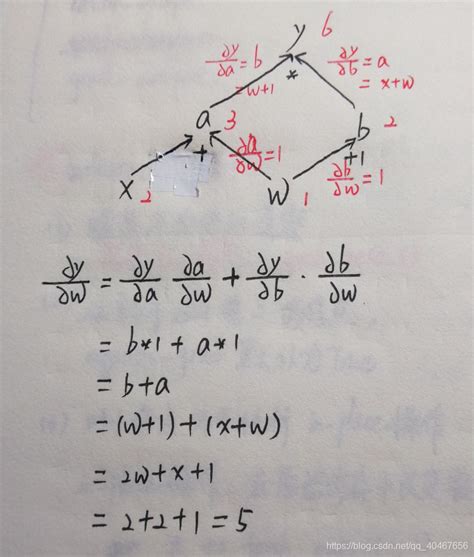 y 6
∂y/∂a = b
= w+1
*
∂y/∂b = a
= x+w
a 3
+
∂a/∂w = 1
b 2
+1
∂b/∂w = 1
x 2
w 1
∂y/∂w = ∂y/∂a ∂a/∂w + ∂y/∂b · ∂b/∂w
= b*1 + a*1
= b+a
= (w+1) + (x+w)
= 2w+x+1
= 2+2+1 = 5
https://blog.csdn.net/qq_40467656